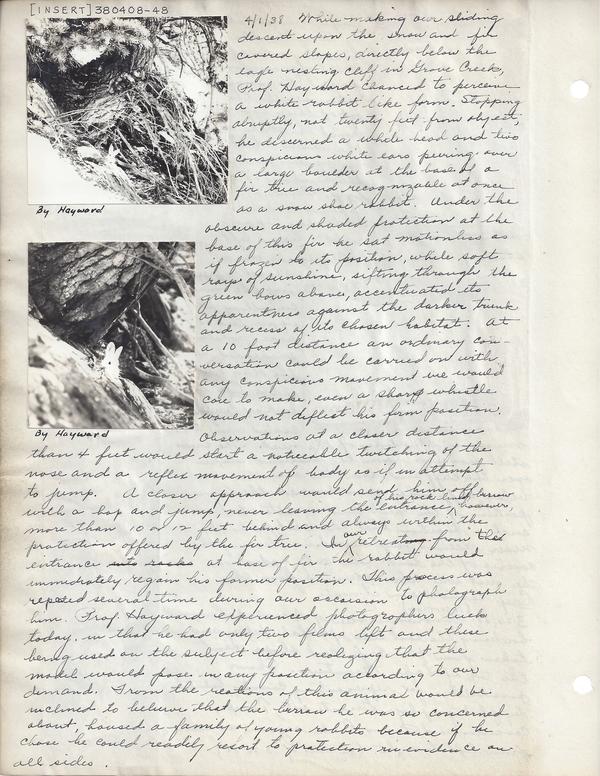 [INSERT] 380408-48
4/1/38 While making our sliding
descent upon the snow and fir
covered slopes, directly below the
eagle nesting cliff in Grove Creek,
Prof. Hayward chanced to perceive
a white rabbit like form. Stopping
abruptly, not twenty feet from object,
he discerned a whole head and two
conspicious white ears peering over
a large boulder at the base of a
fir tree and recognizable at once
as a snow shoe rabbit. Under the
By Hayward
obscure and shaded protection at the
base of this fir he sat motionless as
if frozen to its position, while soft
rays of sunshine, sifting through the
green bows above, accentuated its
apparentness against the darker trunk
and recess of its chosen habitat. At
a 10 foot distance an ordinary con-
versation could be carried on with
any conspicious movement we would
care to make, even a sharp whistle
would not diflect his firm position.
By Hayward
Observations at a closer distance
than 4 feet would start a noticeable twitching of the
nose and a reflex movement of body as if in attempt
to jump. A closer approach would send him off
with a hop and jump, never leaving the entrance of his rock lined burrow, however,
more than 10 or 12 feet behind and always within the
protection offered by the fir tree. In our retreat from the
entrance at base of fir the rabbit would
immediately regain his former position. This process was
repeted several time during our occaision to photograph
him. Prof. Hayward experienced photographers luck
today, in that he had only two films left and these
being used on the subject before realizing that the
model would pose in any position according to our
demand. From the reations of this animal would be
inclined to beluive that the burrow he was so concerned
about, housed a family of young rabbits because if he
chose he could readily resort to protection in evidence on
all sides.